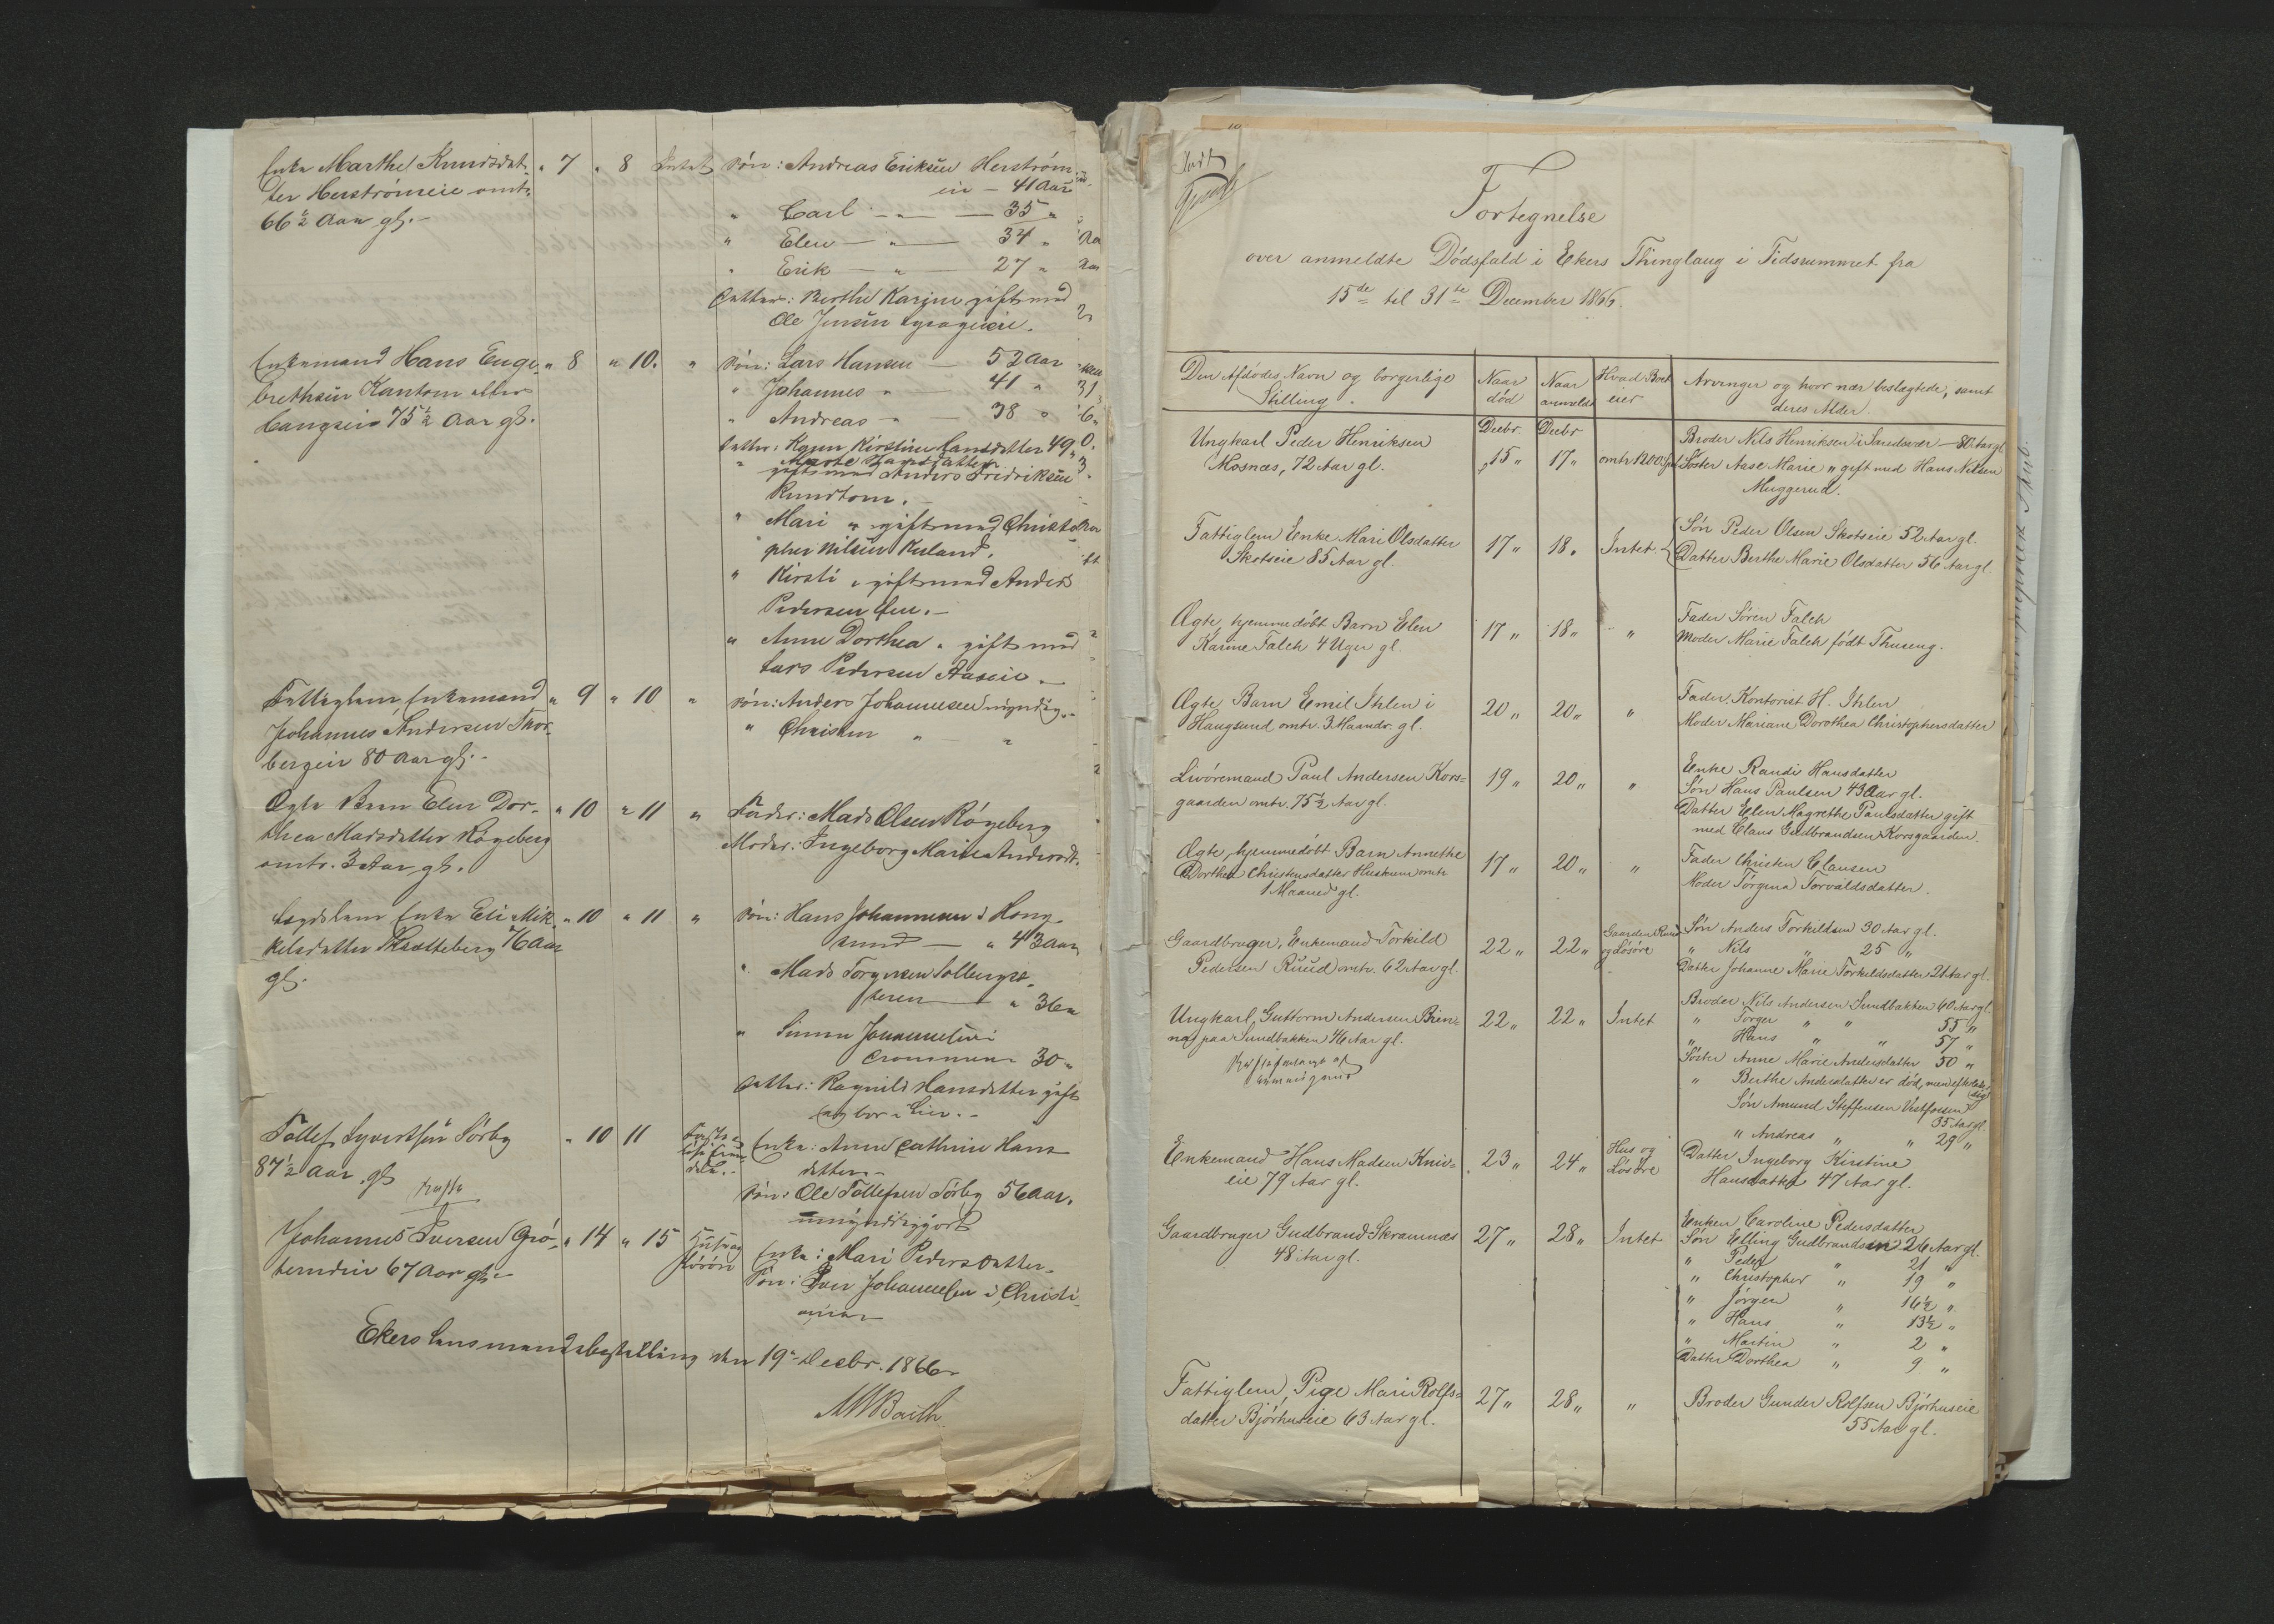 Enke Marthe Knudsdat- " 7 " 8 Intet Søn: Andreas Eriksen Herstrøm
ter Herstrømseie omtr. eie — 41 Aar
66½ Aar gl. " Carl — " — 35 "
" Elen — " — 34 "
" Erik — " — 27 "
Datter: Berthe Karine gift med
Ole Jensen
Enkemand Hans Enge- " 8 " 10. " Søn: Lars Hansen — 52 Aar
brethsen " Johannes " — 41 "
75½ Aar gl. " Andreas " — 38 "
Datter: Kirstine Hansdatter 49 "
" Marte Hansdatter
gift med Anders Fredriksen
Rundtom.
" Mari " gift med Christo-
pher Nilsen Ruland.
" Kirsti " gift med Anders
Pedersen
" Anne Dorthea " gift med
Lars Pedersen Aaseie.
Fattiglem, Enkemand " 9 " 10 " Søn: Anders Johannesen myndig.
Johannes Andersen Thor- " Christen " "
bergeie 80 Aar gl.
Ægte Barn Elen Dor- " 10 " 11 " Fader: Mads Olsen Røgeberg
thea Madsdatter Røgeberg Moder: Ingeborg Marie Andersdt.
omtr. 3 Aar gl.
Lægdslem Enke Eli Mik- " 10 " 11 " Søn: Hans Johannesen i Houg-
kelsdatter 76 Aar sund — " 43 Aar
gl. " Mads Torgersen Solbergs-
" 36 "
" Simen Johannesen i
Drammen 30 "
Datter: Ragnild Hansdatter gift
og bor i Lier.
Tollef Syvertsen Sørby " 10 11 Enke: Anne Cathrine Hans-
87½ Aar gl. datter
Søn: Ole Tollefsen Sørby 56 Aar.
umyndiggjort
Johannes Iversen Grø- " 14 " 15 Huus og Enke: Mari Pedersdatter
67 Aar gl. Løsøre Søn: Iver Johannesen i Christi-
ania
Ekers Lensmandsbestilling den 19de Decbr. 1866
Fortegnelse
over anmeldte Dødsfald i Ekers Thinglaug i Tidsrummet fra
15de til 31te December 1866.
Den Afdødes Navn og borgerlige Stilling. Naar død Naar anmeldt Hvad Boet eier Arvinger og hvor nær beslægtede, samt deres Alder.
Decbr. Decbr
Ungkarl Peder Henriksen 15 " 17 " omtr. 1200 Spd. Broder Nils Henriksen i Sandsvær — 80 Aar gl.
Mosnæs, 72 Aar gl. Søster Aase Marie " gift med Hans Nilsen
Muggerud.
Fattiglem Enke Mari Olsdatter 17 " 18 " Intet. Søn Peder Olsen Skotseie 52 Aar gl.
Skotseie 85 Aar gl. Datter Berthe Marie Olsdatter 56 Aar gl.
Ægte, hjemmedøbt Barn Elen 17 " 18 " " Fader Søren Falch
Karine Falch 4 Uger gl. Moder Marie Falch født Thuseng.
Ægte Barn Emil Ihlen i 20 " 20 " " Fader Kontorist H. Ihlen
Haugsund omtr. 3 Maandr. gl. Moder Mariane Dorothea Christophersdatter
Livøremand Paul Andersen Kors- 19 " 20 " " Enke Randi Hansdatter
gaarden omtr. 75½ Aar gl. Søn Hans Paulsen 43 Aar gl.
Datter Elen Magrethe Paulsdatter gift
med Claus Gudbrandsen Korsgaarden.
Ægte, hjemmedøbt Barn Annethe 17 " 20 " " Fader Christen Clausen
Dorthea Christensdatter Huskum omtr. Moder Tørgina Torvaldsdatter.
1 Maaned gl.
Gaardbruger, Enkemand Torkild 22 " 22 " Gaarden Ruud og Løsøre Søn Anders Torkildsen 30 Aar gl.
Pedersen Ruud omtr. 62 Aar gl. " Nils " 25 "
Datter Johanne Marie Torkildsdatter 21 Aar gl.
Ungkarl, Guttorm Andersen Bren- 22 " 22 " Intet Broder Nils Andersen Sundbakken 60 Aar gl.
næs paa Sundbakken 46 Aar gl. " Torger " " 55 "
" Hans " " 57 "
Søster Anne Marie Andersdatter 50 "
" Berthe Andersdatter er død, men efterladt sig
Søn Amund Steffensen Vestfossen
35 Aar gl.
" Andreas " " 29 "
Enkemand Hans Madsen Knive- 23 " 24 " Hus og Løsøre Datter Ingeborg Kirstine
eie 79 Aar gl. Hansdatter 47 Aar gl.
Gaardbruger Gudbrand Skramnæs 27 " 28 " Intet Enken Caroline Pedersdatter
48 Aar gl. Søn Elling Gudbrandsen 26 Aar gl.
" Peder " 21 "
" Christopher " 19 "
" Jørgen " 16½ "
" Hans " 13½ "
" Martin " 2 "
Datter Dorthea " 9 "
Fattiglem, Pige Mari Rolfs- 27 " 28 " " Broder Gunder Rolfsen Bjørhuseie
datter Bjørhuseie 63 Aar gl. 55 Aar gl.